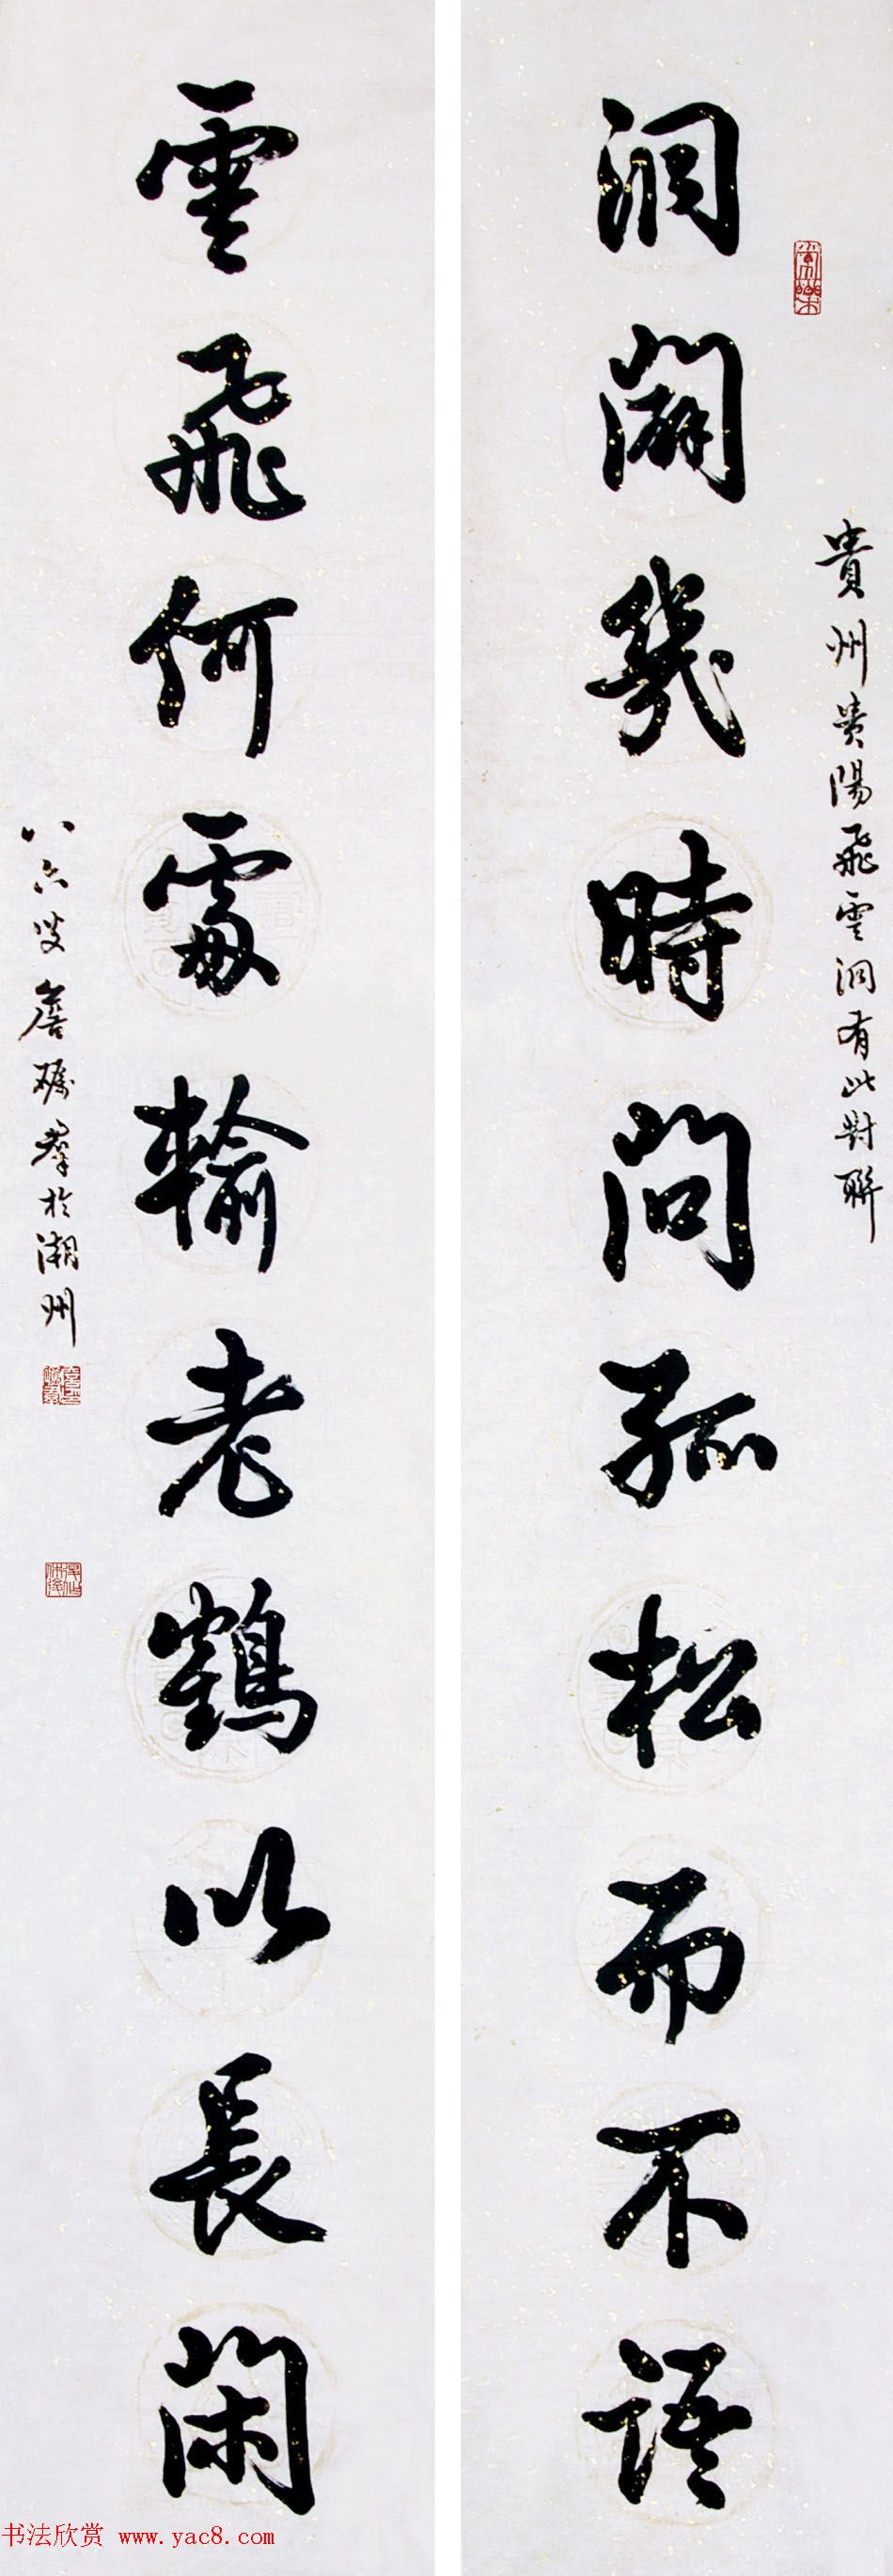 貴州貴陽飛雲洞有此對聯
洞闢幾時問孤松而不語
雲飛何處輸老鶴以長閑
八六叟詹礪羣於潮州
书法欣赏 www.yac8.com